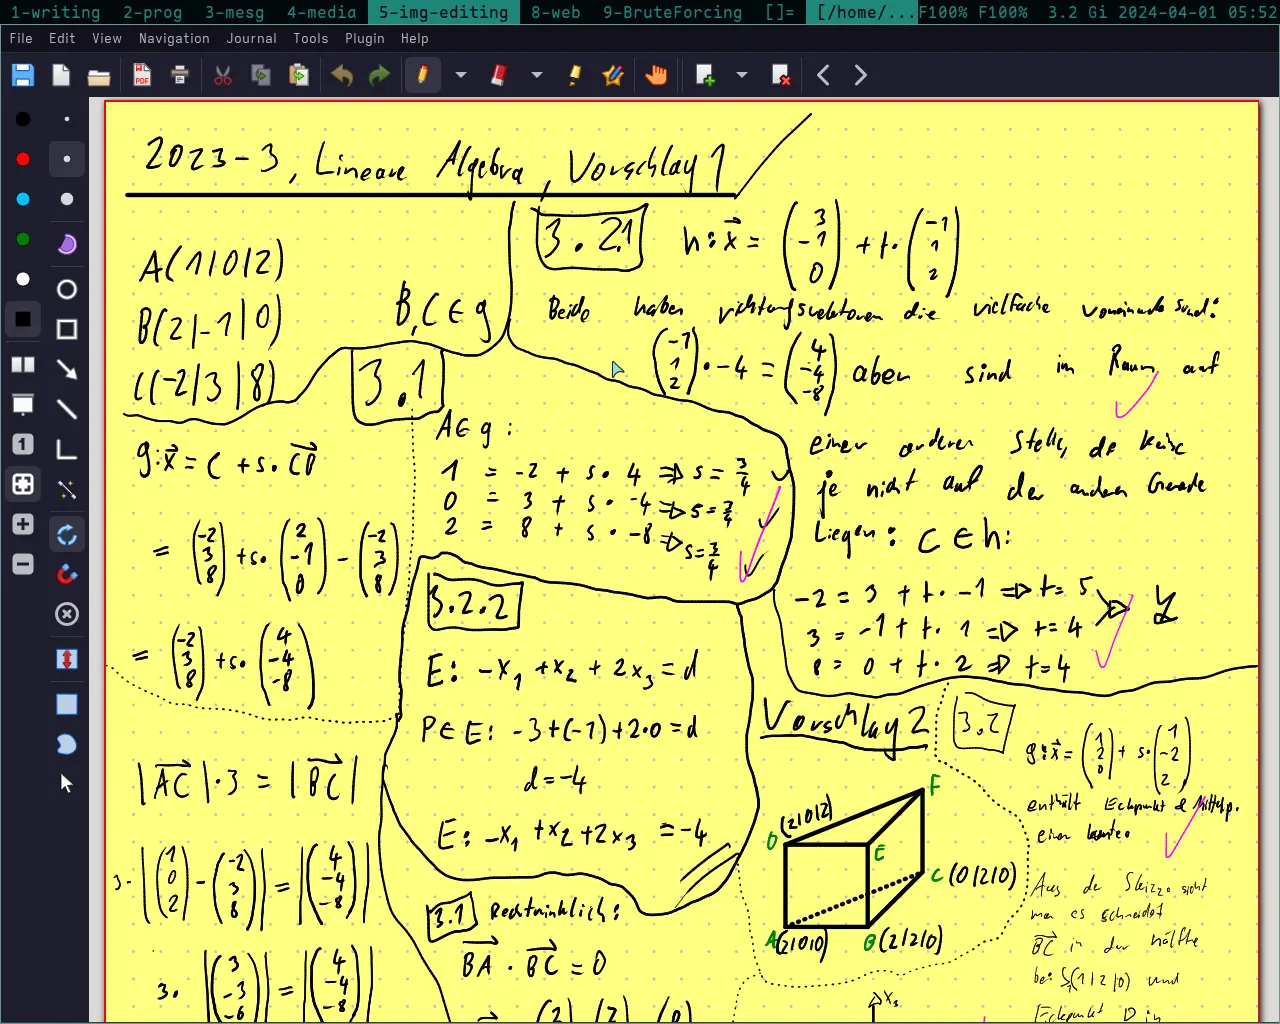 1-writing 2-prog 3-mesg 4-media 5-img-editing 8-web 9-BruteForcing []= [/home/... F100% F100% 3.2 Gi 2024-04-01 05:52
File Edit View Navigation Journal Tools Plugin Help
2023-3, Lineare Algebra, Vorschlag 1
A(1|0|2)
B(2|-1|0)
C(-2|3|8)
B, C ∈ g
3.1
g: x⃗ = C + s · CB⃗
= (-2 3 8) + s · (2 -1 0) - (-2 3 8)
= (-2 3 8) + s · (4 -4 -8)
A ∈ g :
1 = -2 + s · 4 => s = 3/4 ✓
0 = 3 + s · -4 => s = 3/4 ✓
2 = 8 + s · -8 => s = 3/4 ✓
|AC⃗| · 3 = |BC⃗|
3 · |(1 0 2) - (-2 3 8)| = |(4 -4 -8)|
3 · |(3 -3 -6)| = |(4 -4 -8)|
3.2.1
h: x⃗ = (3 -1 0) + t · (-1 1 2)
Beide haben richtungsvektoren die vielfache voneinander sind:
(-1 1 2) · -4 = (4 -4 -8) aber sind im Raum auf
einer anderen Stelle, da
je nicht auf der anderen Gerade
Liegen: C ∈ h:
-2 = 3 + t · -1 => t = 5
3 = -1 + t · 1 => t = 4
8 = 0 + t · 2 => t = 4
3.2.2
E: -x₁ + x₂ + 2x₃ = d
P ∈ E: -3 + (-1) + 2·0 = d
d = -4
E: -x₁ + x₂ + 2x₃ = -4
Vorschlag 2
3.1 Rechtwinklich:
BA⃗ · BC⃗ = 0
D (2|0|2)
F
E
C (0|2|0)
A (2|0|0)
B (2|2|0)
x₃
3.2
g: x⃗ = (1 2 0) + s · (1 -2 2)
enthält Eckpunkt & Mittelp.
einer kante.
Aus der Skizze sieht
man es schneidet
BC⃗ in der hälfte
bei S₁(1|2|0) und
Eckpunkt D in